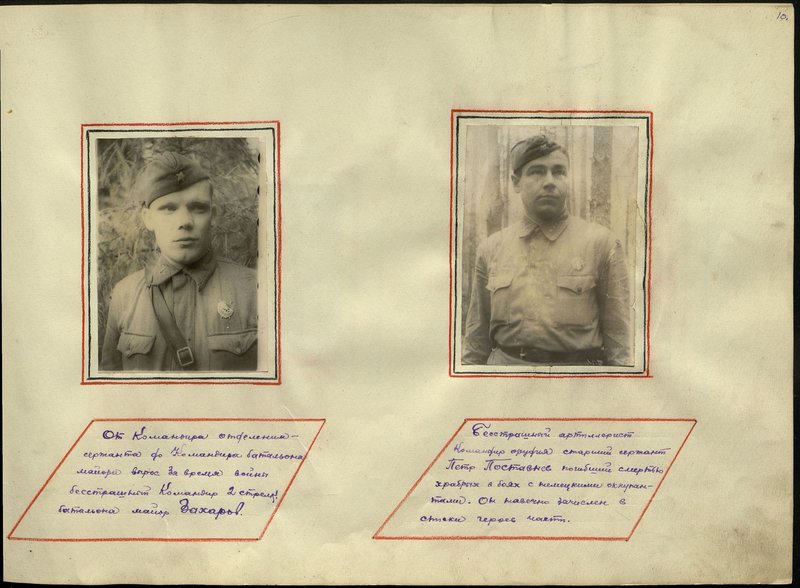 10.
От Командира отделения-
сержанта до Командира батальона
майора вырос за время войны
бесстрашный Командир 2 стрелк.
батальона майор Захаров.
Бесстрашный артиллерист
Командир орудия старший сержант
Петр Поставнев погибший смертью
храбрых в боях с немецкими оккупан-
тами. Он навечно зачислен в
списки героев части.